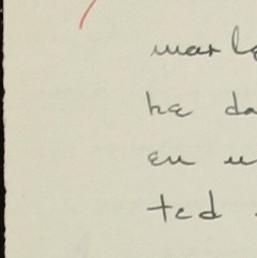 war le
he da
en u
ted